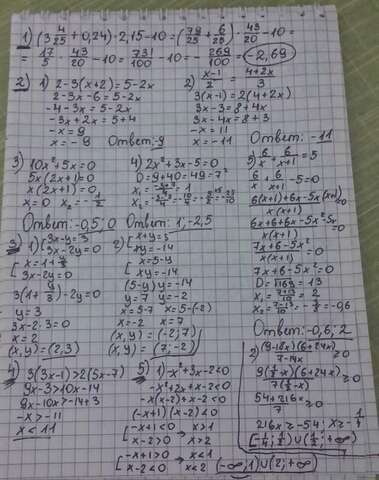 1) (3 4/25 + 0,24) · 2,15 - 10 = (79/25 + 6/25) · 43/20 - 10 =
= 17/5 · 43/20 - 10 = 731/100 - 10 = - 269/100 = -2,69
2) 1) 2-3(x+2) = 5-2x
2-3x-6 = 5-2x
-4-3x = 5-2x
-3x+2x = 5+4
-x = 9
x = -9 Ответ: -9
2) x-1/2 = 4+2x/3
3(x-1) = 2(4+2x)
3x-3 = 8+4x
3x-4x = 8+3
-x = 11
x = -11
Ответ: -11
3) 10x²+5x=0
5x(2x+1)=0
x(2x+1)=0
x=0 x₂=-1/2
Ответ: -0,5; 0
4) 2x²+3x-5=0
D=9+40=49=7²
Ответ: 1; -2,5
5) 6/x + 6/x+1 = 5
6/x + 6/x+1 - 5 = 0
6(x+1)+6x-5x(x+1)
x(x+1)
x(x+1)
7x+6-5x²
x(x+1) = 0
7x+6-5x²=0
D=√169=13
Ответ: -0,6; 2
3) 1) {3x-y=3
3x-2y=0
[x=1+y/3
3x-2y=0
3(1+y/3)-2y=0
y=3
3x-2·3=0
x=2
(x,y)=(2,3)
2) {x+y=5
xy=-14
[x=5-y
xy=-14
(5-y)y=-14
y=7 y=-2
x=5-7 x=5-(-2)
x=-2 x=7
(x,y)=(-2;7)
(x,y)=(7;-2)
4) 3(3x-1)>2(5x-7)
9x-3>10x-14
9x-10x>-14+3
-x>-11
x<11
5) 1) -x²+3x-2<0
-x²+2x+x-2<0
-x(x-2)+x-2<0
(-x+1)(x-2)<0
[-x+1<0 x>1
x-2>0 x>2
[-x+1>0 x<1
x-2<0 x<2 (-∞;1)∪(2;+∞)
2) (9-18x)(6+24x)
7-14x ≥0
9(1/2-x)(6+24x)
7(1/2-x) ≥0
54+216x
7 ≥0
216x≥-54; x≥-1/4
[-1/4; 1/2)∪(1/2; +∞)